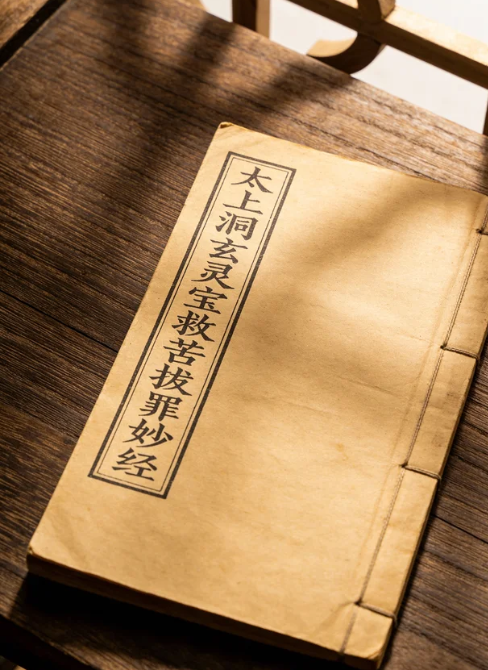 太上洞玄灵宝救苦拔罪妙经